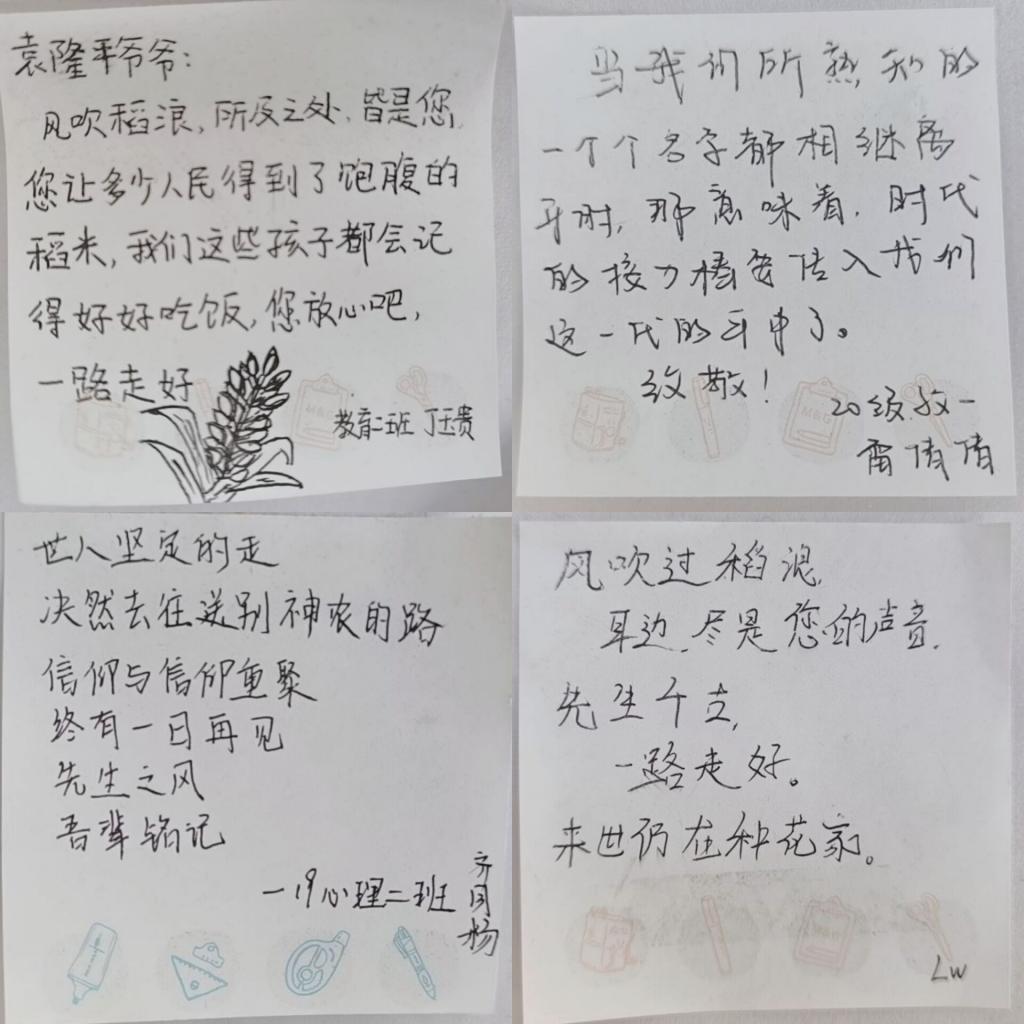 袁隆平爷爷:
风吹稻浪,所及之处,皆是您,
您让多少人民得到了饱腹的
稻米,我们这些孩子都会记
得好好吃饭,您放心吧,
一路走好
教育二班 丁玉贵
当我们所熟知的
一个个名字都相继离
开时,那意味着,时代
的接力棒要传入我们
这一代的手中了。
致敬!
20级教一
雷倩倩
世人坚定的走
决然去往送别神农的路
信仰与信仰重聚
终有一日再见
先生之风
吾辈铭记
一19心理二班
齐同杨
风吹过稻浪,
耳边,尽是您的声音,
先生千古,
一路走好。
来世仍在种花家。
Lw